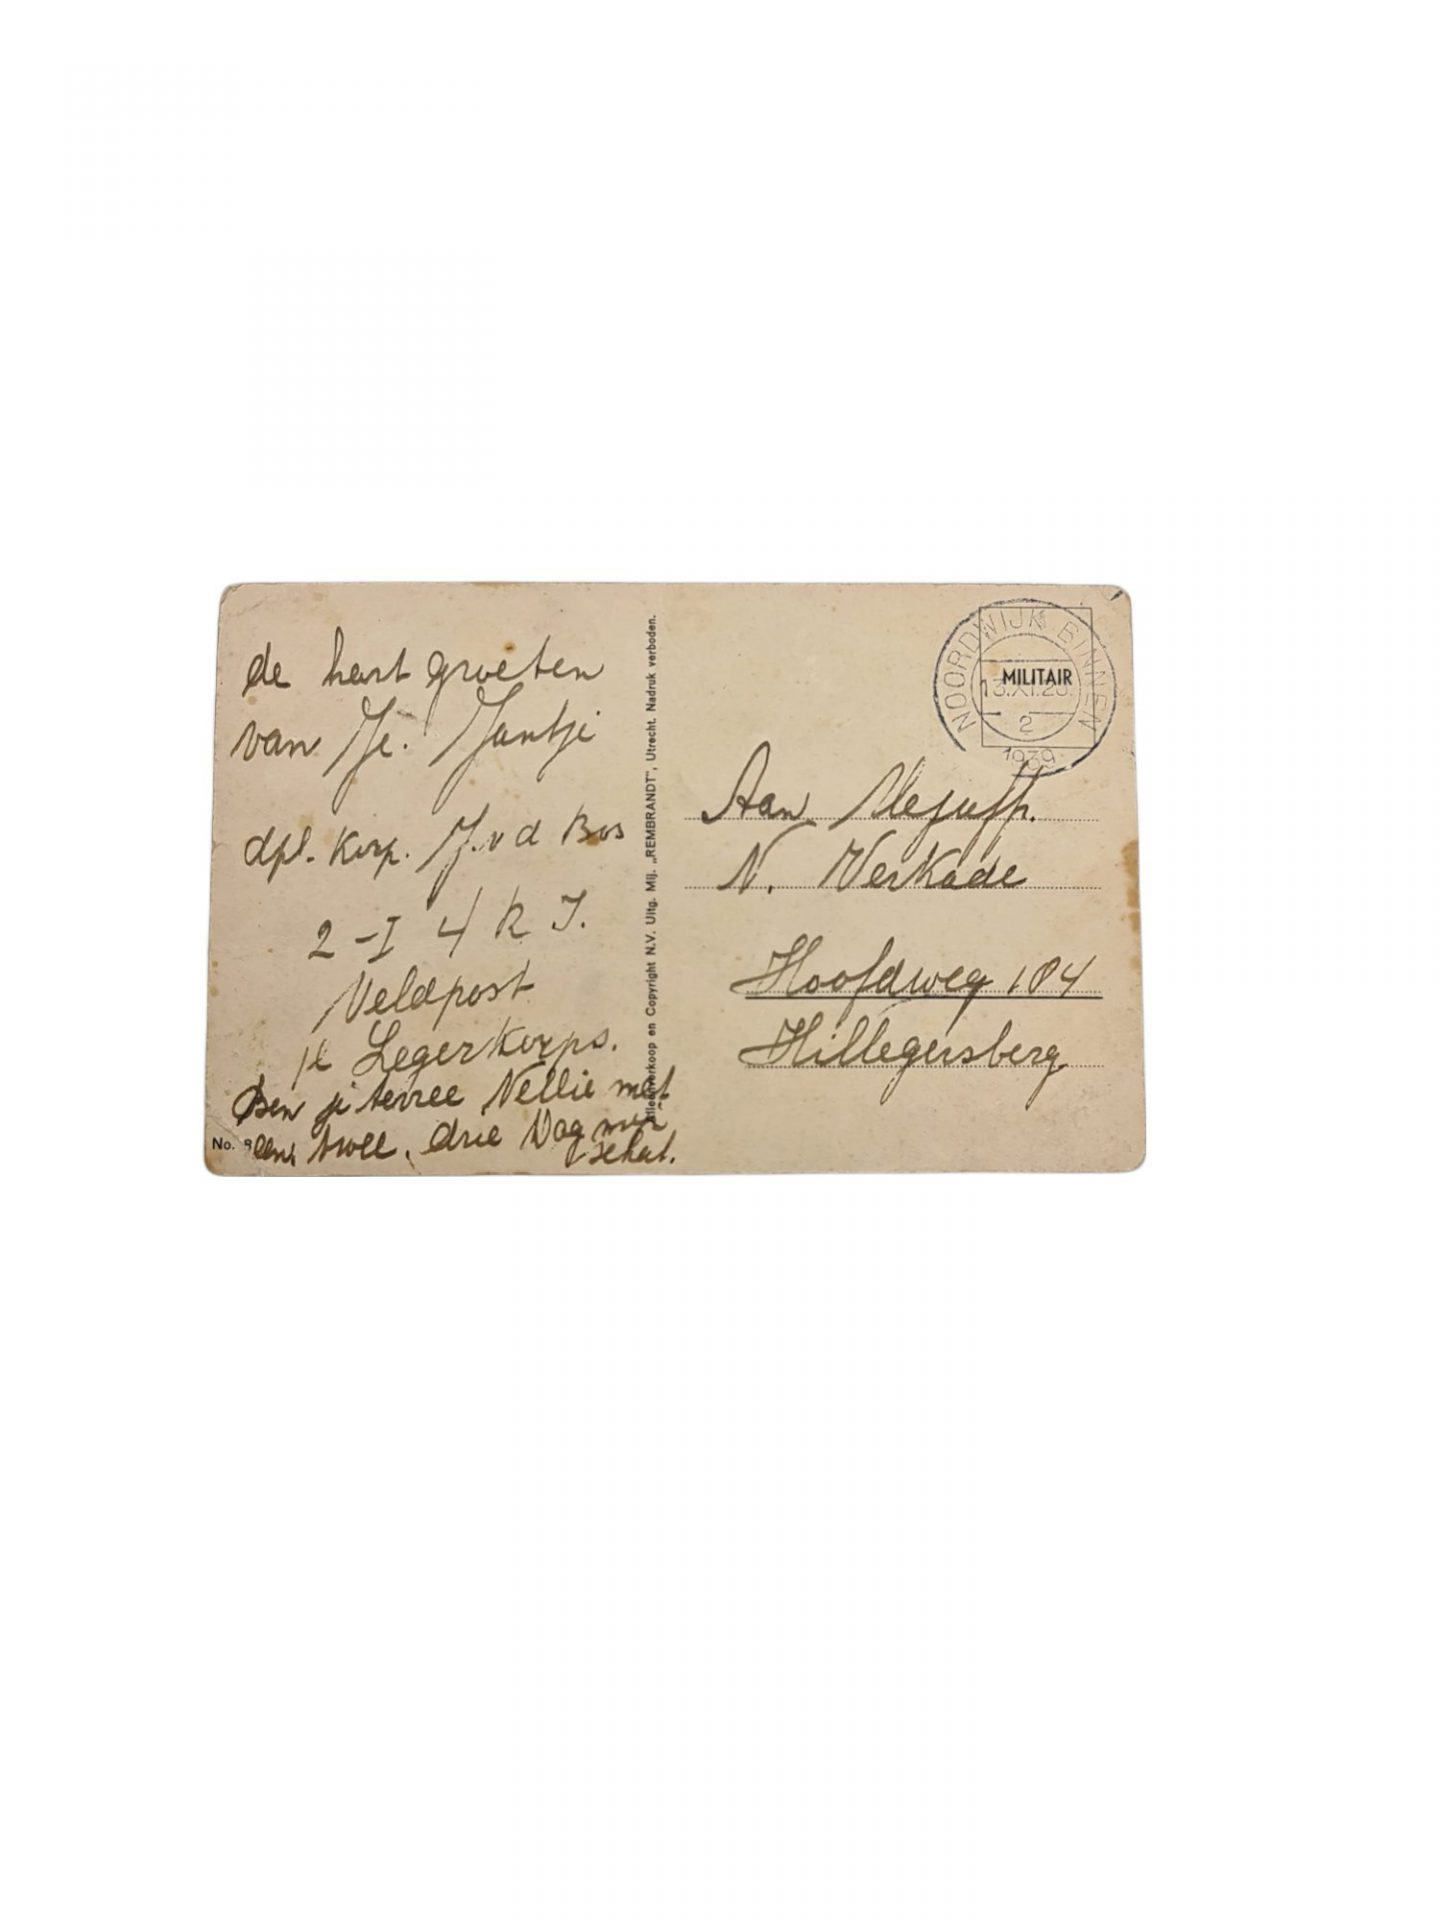 de hart groeten
van Je. Jantji
dpl. Korp. J. v d Bos
2 - I 4 R I.
Veldpost
1e Legerkorps.
Ben je tevree Nellie met
een, twee, drie Dag mijn
schat.
No.
Alleenverkoop en Copyright N.V. Uitg. Mij. „REMBRANDT", Utrecht. Nadruk verboden.
NOORDWIJK BINNEN
MILITAIR
13.XI.20
2
1939
Aan Mejuffr.
N. Verkade
Hoofdweg 184
Hillegersberg